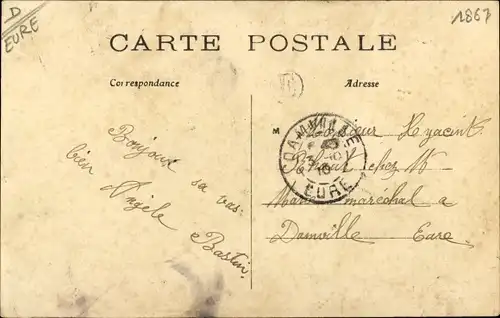 D
EURE
1867
CARTE POSTALE
Correspondance
Adresse
Bonjour sa vas
bien
Angèle
Bastin.
M onsieur Hyacint
chez Mr
maréchal a
Damville Eure
DAMVILLE
EURE